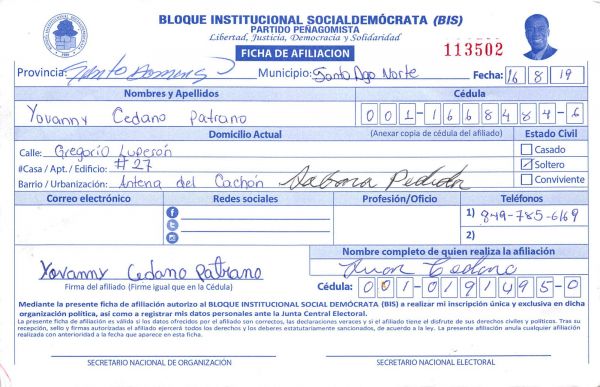 BLOQUE INSTITUCIONAL SOCIALDEMÓCRATA (BIS)
PARTIDO PEÑAGOMISTA
Libertad, Justicia, Democracia y Solidaridad
FICHA DE AFILIACION
113502
Provincia: Santo Domingo Municipio: Santo Dgo Norte Fecha: 16 8 19
Nombres y Apellidos Cédula
Yovanny Cedano Patrano 001-1668484-6
Domicilio Actual (Anexar copia de cédula del afiliado) Estado Civil
Calle: Gregorio Luperon Casado
#Casa / Apt. / Edificio: #27 Soltero
Barrio / Urbanización: Antena del Cachón Sabana Perdida Conviviente
Correo electrónico Redes sociales Profesión/Oficio Teléfonos
1) 849-785-6169
2)
Nombre completo de quien realiza la afiliación
Yovanny Cedano Patrano Juan Cedano
Firma del afiliado (Firme igual que en la Cédula) Cédula: 001-0191495-0
Mediante la presente ficha de afiliación autorizo al BLOQUE INSTITUCIONAL SOCIAL DEMÓCRATA (BIS) a realizar mi inscripción única y exclusiva en dicha
organización política, así como a registrar mis datos personales ante la Junta Central Electoral.
La presente ficha de afiliación es válida si los datos ofrecidos por el afiliado son correctos, las declaraciones veraces y si el afiliado tiene el disfrute de sus derechos civiles y políticos. Tras su
recepción, sello y firmas autorizadas el afiliado ejercerá todos los derechos y los deberes estatutariamente sancionados, de acuerdo a la ley. La presente afiliación anula cualquier afiliación
realizada con anterioridad a la fecha que aparece en esta ficha.
SECRETARIO NACIONAL DE ORGANIZACIÓN SECRETARIO NACIONAL ELECTORAL